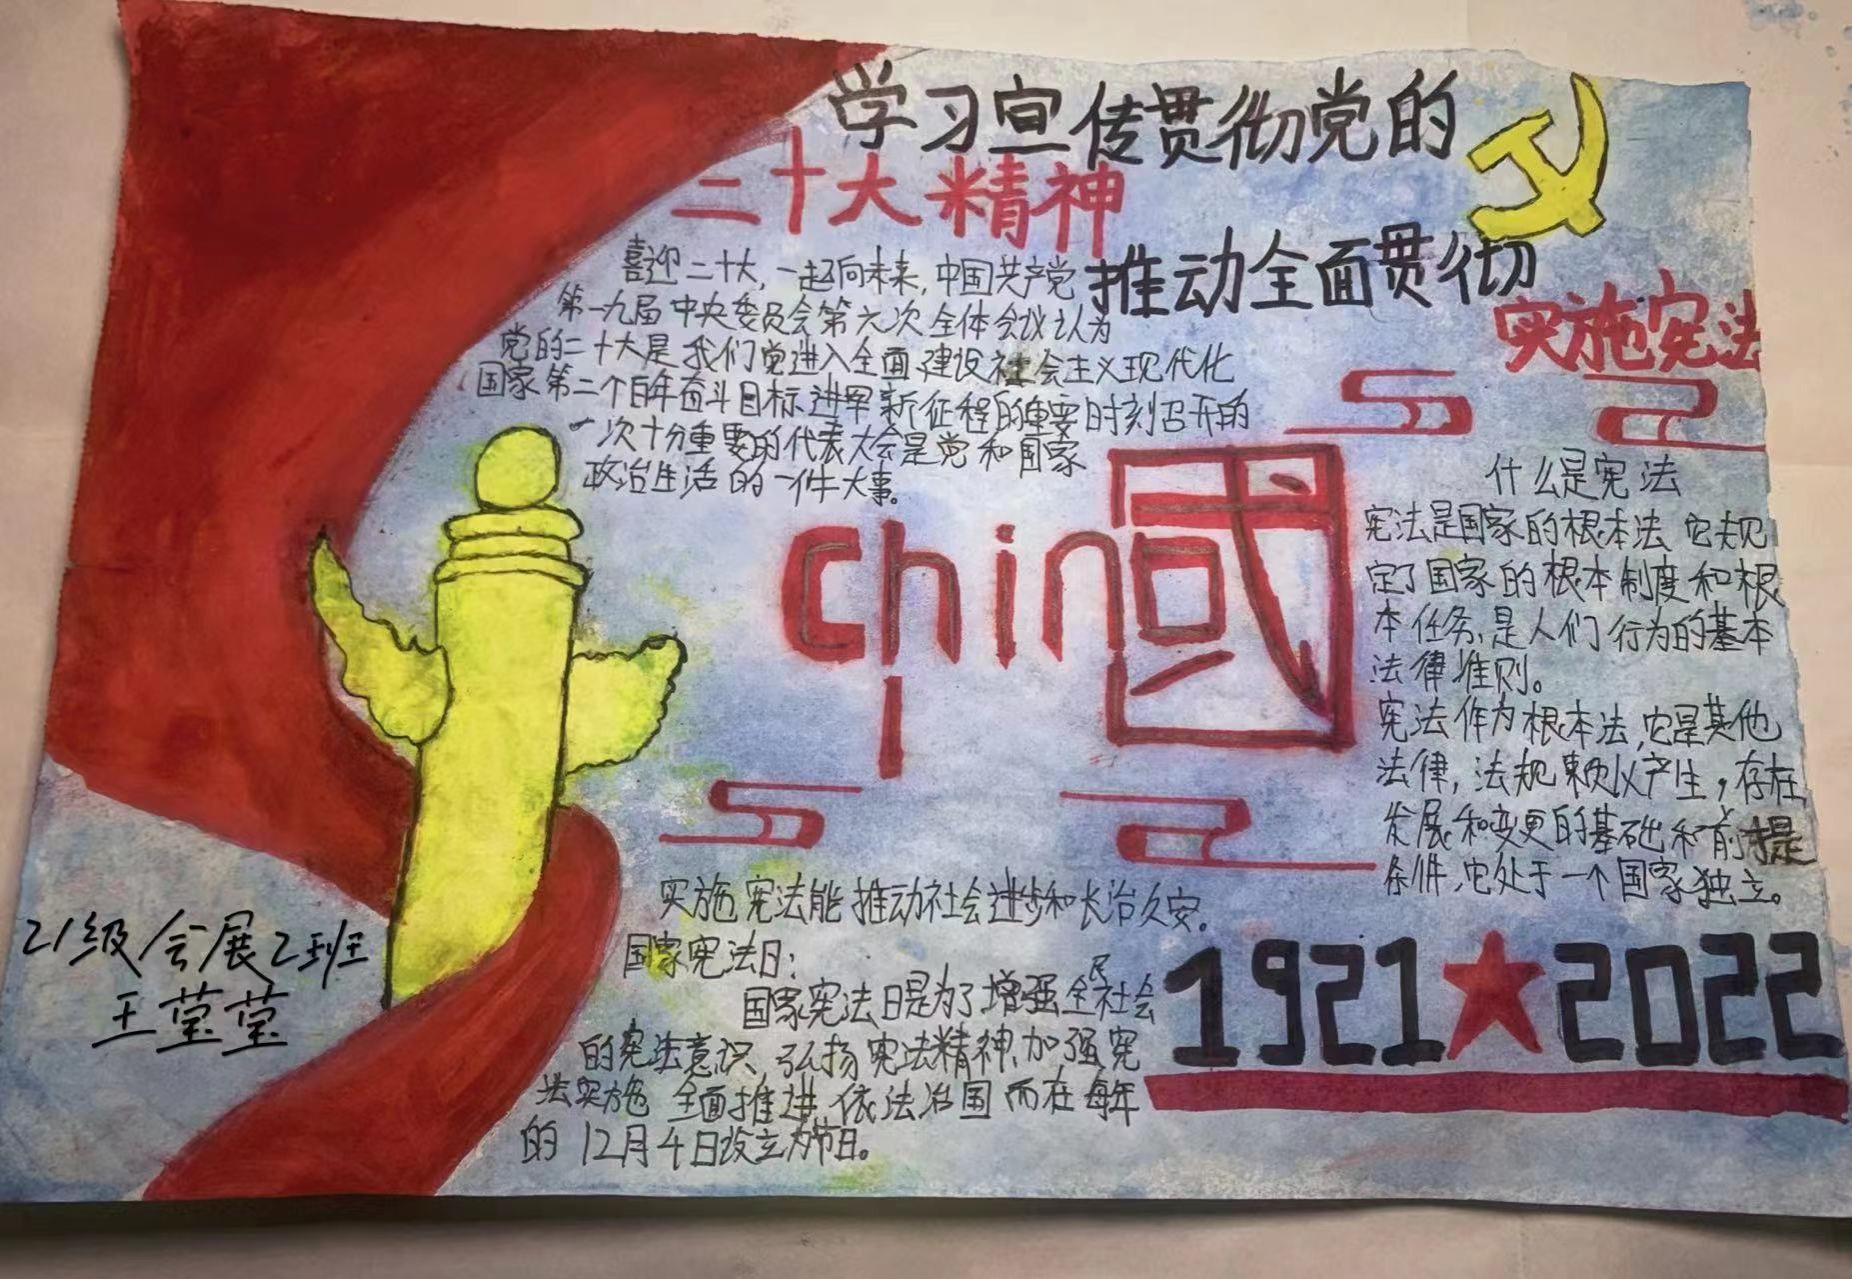 学习宣传贯彻党的
二十大精神
推动全面贯彻
实施宪法
喜迎二十大，一起向未来，中国共产党
第一九届中央委员会第六次全体会议认为
党的二十大是我们党进入全面建设社会主义现代化
国家第二个百年奋斗目标进军新征程的重要时刻召开的
一次十分重要的代表大会是党和国家
政治生活的一件大事。
chin國
什么是宪法
宪法是国家的根本法，它规
定了国家的根本制度和根
本任务，是人们行为的基本
法律准则。
宪法作为根本法，它是其他
法律，法规赖以产生，存在，
发展和变更的基础和前提
条件，它处于一个国家独立。
实施宪法能推动社会进步和长治久安。
国家宪法日：
国家宪法日是为了增强全民社会
的宪法意识，弘扬宪法精神，加强宪
法实施，全面推进，依法治国而在每年
的12月4日设立为节日。
1921★2022
21级会展2班
王莹莹